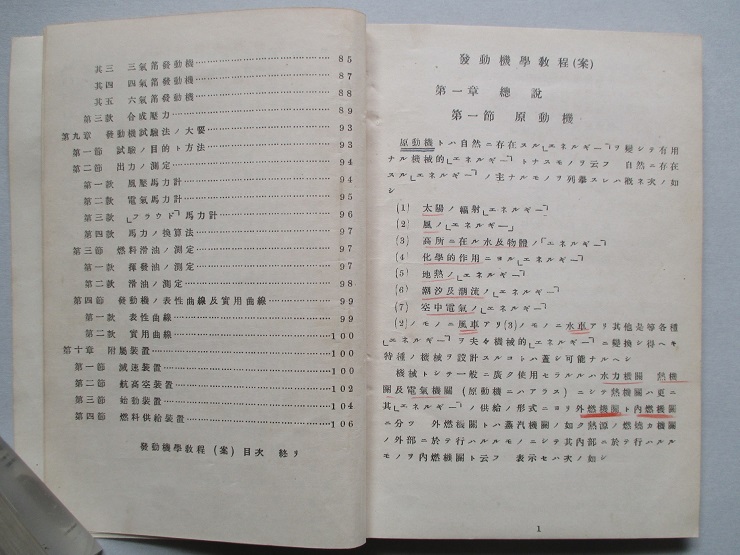 其三 三氣筩發動機 85
其四 四氣筩發動機 87
其五 六氣筩發動機 88
第三款 合成壓力 89
第九章 發動機試驗法ノ大要 93
第一節 試驗ノ目的ト方法 93
第二節 出力ノ測定 94
第一款 風壓馬力計 94
第二款 電氣馬力計 95
第三款 「フラウド」馬力計 96
第四款 馬力ノ換算法 97
第三節 燃料滑油ノ測定 97
第一款 揮發油ノ測定 97
第二款 滑油ノ測定 98
第四節 發動機ノ表性曲線及實用曲線 99
第一款 表性曲線 99
第二款 實用曲線 100
第十章 附屬裝置 100
第一節 減速裝置 100
第二節 航高空裝置 102
第三節 始動裝置 104
第四節 燃料供給裝置 106
發動機學教程(案)目次 終リ
發動機學教程(案)
第一章 總說
第一節 原動機
原動機トハ自然ニ存在スル「エネルギー」ヲ變シテ有用
ナル機械的「エネルギー」トナスモノヲ云フ 自然ニ存在
スル「エネルギー」ノ主ナルモノヲ列擧スレハ槪ネ次ノ如
シ
(1) 太陽ノ輻射「エネルギー」
(2) 風ノ「エネルギー」
(3) 高所ニ在ル水及物體ノ「エネルギー」
(4) 化學的作用ニヨル「エネルギー」
(5) 地熱ノ「エネルギー」
(6) 潮汐及潮流ノ「エネルギー」
(7) 空中電氣ノ「エネルギー」
(2)ノモノニ風車アリ(3)ノモノニ水車アリ其他是等各種
「エネルギー」ヲ夫々機械的「エネルギー」ニ變換シ得ヘキ
特種ノ機械ヲ設計スルコトハ蓋シ可能ナルヘシ
機械トシテ一般ニ廣ク使用セラルルハ水力機關 熱機
關及電氣機關(原動機ニハアラス)ニシテ熱機關ハ更ニ
其「エネルギー」ノ供給ノ形式ニヨリ外燃機關ト內燃機關
ニ分ツ 外燃機關トハ蒸汽機關ノ如ク熱源ノ燃燒カ機關
ノ外部ニ於テ行ハルルモノニシテ其內部ニ於テ行ハルル
モノヲ內燃機關ト云フ 表示セハ次ノ如シ
1